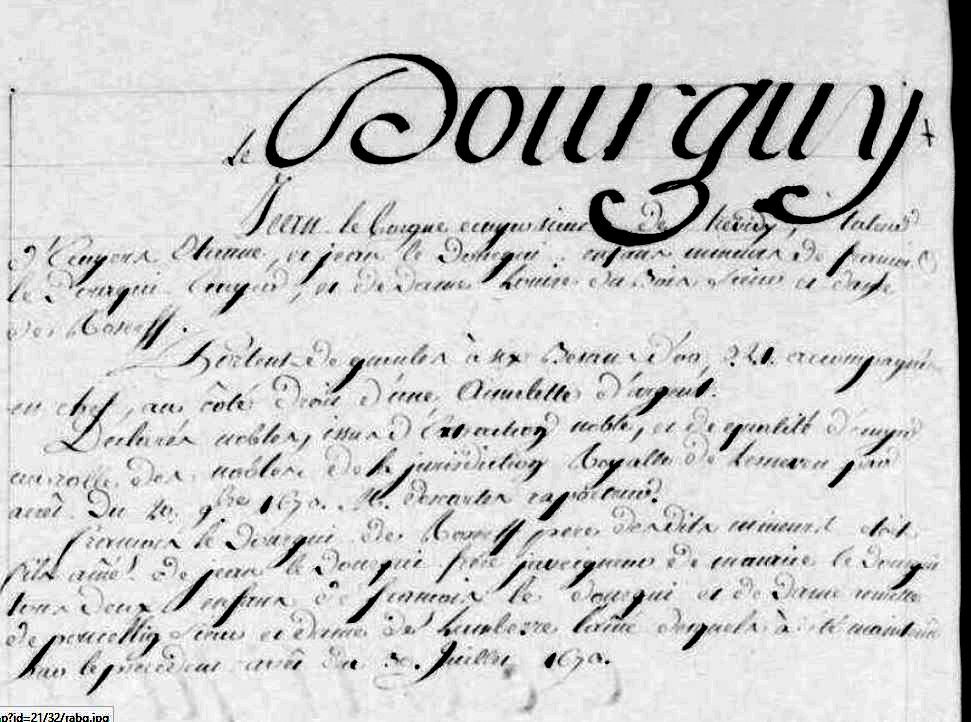 le Dourguy
Jean le borgne de tuteur
d'Etienne, et jean le Dourgui enfans mineurs de francois
le Dourgui et de dame Louise du Bois Sieur et dame
de Rosneff.
Portent de gueules à six Besans d'or, 3.2.1. accompagnés
en chef, au côté droit d'une Annelette d'argent.
Déclarés nobles, issus d'Extraction noble, et de qualité d'ecuyer
au rolle des nobles de la jurisdiction Royalle de Lesneven par
arrêt du 9bre 1670. M. descartes raporteur.
francois le Dourgui de Rosneff pere desdits mineurs étoit
fils aîné de jean le Dourgui frere juveigneur de maurice le dourgui
tous deux enfans de francois le dourgui et de dame
de Sieur et dame de l'aîné desquels à été maintenu
par le précédent arrêt du 30 Juillet 1670.
p?id=21/32/rabq.jpg